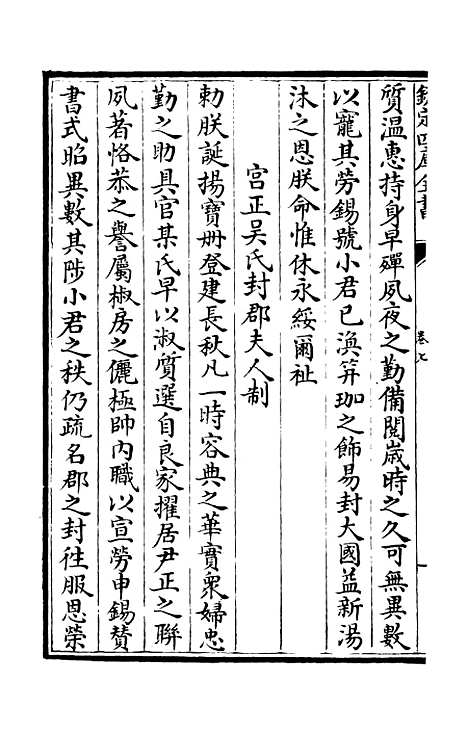 欽定四庫全書
卷七
質溫惠持身早殫夙夜之勤備閱歲時之久可無異數
以寵其勞錫號小君已渙笄珈之飾易封大國益新湯
沐之恩朕命惟休永綏爾祉
宮正吳氏封郡夫人制
勅朕誕揚寶冊登建長秋凡一時容典之華實衆婦忠
勤之助具官某氏早以淑質選自良家擢居尹正之聯
夙著恪恭之譽屬椒房之儷極帥內職以宣勞申錫贊
書式昭異數其陟小君之秩仍疏名郡之封徃服恩榮